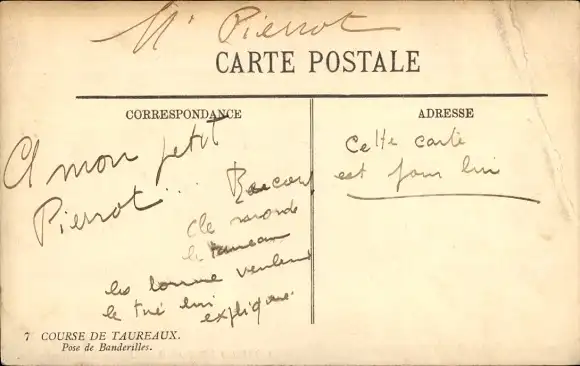 Mr Pierrot
CARTE POSTALE
CORRESPONDANCE
A mon petit
Pierrot...
le
les veulent
le tué lui
explique.
ADRESSE
Cette carte
est pour lui
7 COURSE DE TAUREAUX.
Pose de Banderilles.